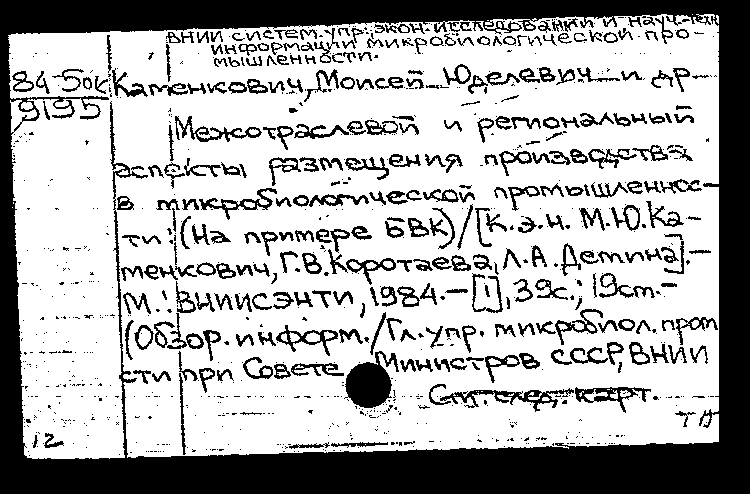 ВНИИ систем. упр. экон. исследований и науч.-техн.
информации микробиологической про-
мышленности.
84-5ок
9195
Каменкович, Моисей Юделевич и др
Межотраслевой и региональный
аспекты размещения производства
в микробиологической промышленнос-
ти: (На примере БВК) / [К.э.н. М.Ю.Ка-
менкович, Г.В.Коротаева, Л.А.Демина]. —
М.: ВНИИСЭНТИ, 1984. — [1], 39с.; 19см. —
(Обзор. информ. / Гл. упр. микробиол. пром
сти при Совете Министров СССР, ВНИИ
См. след. карт.
12